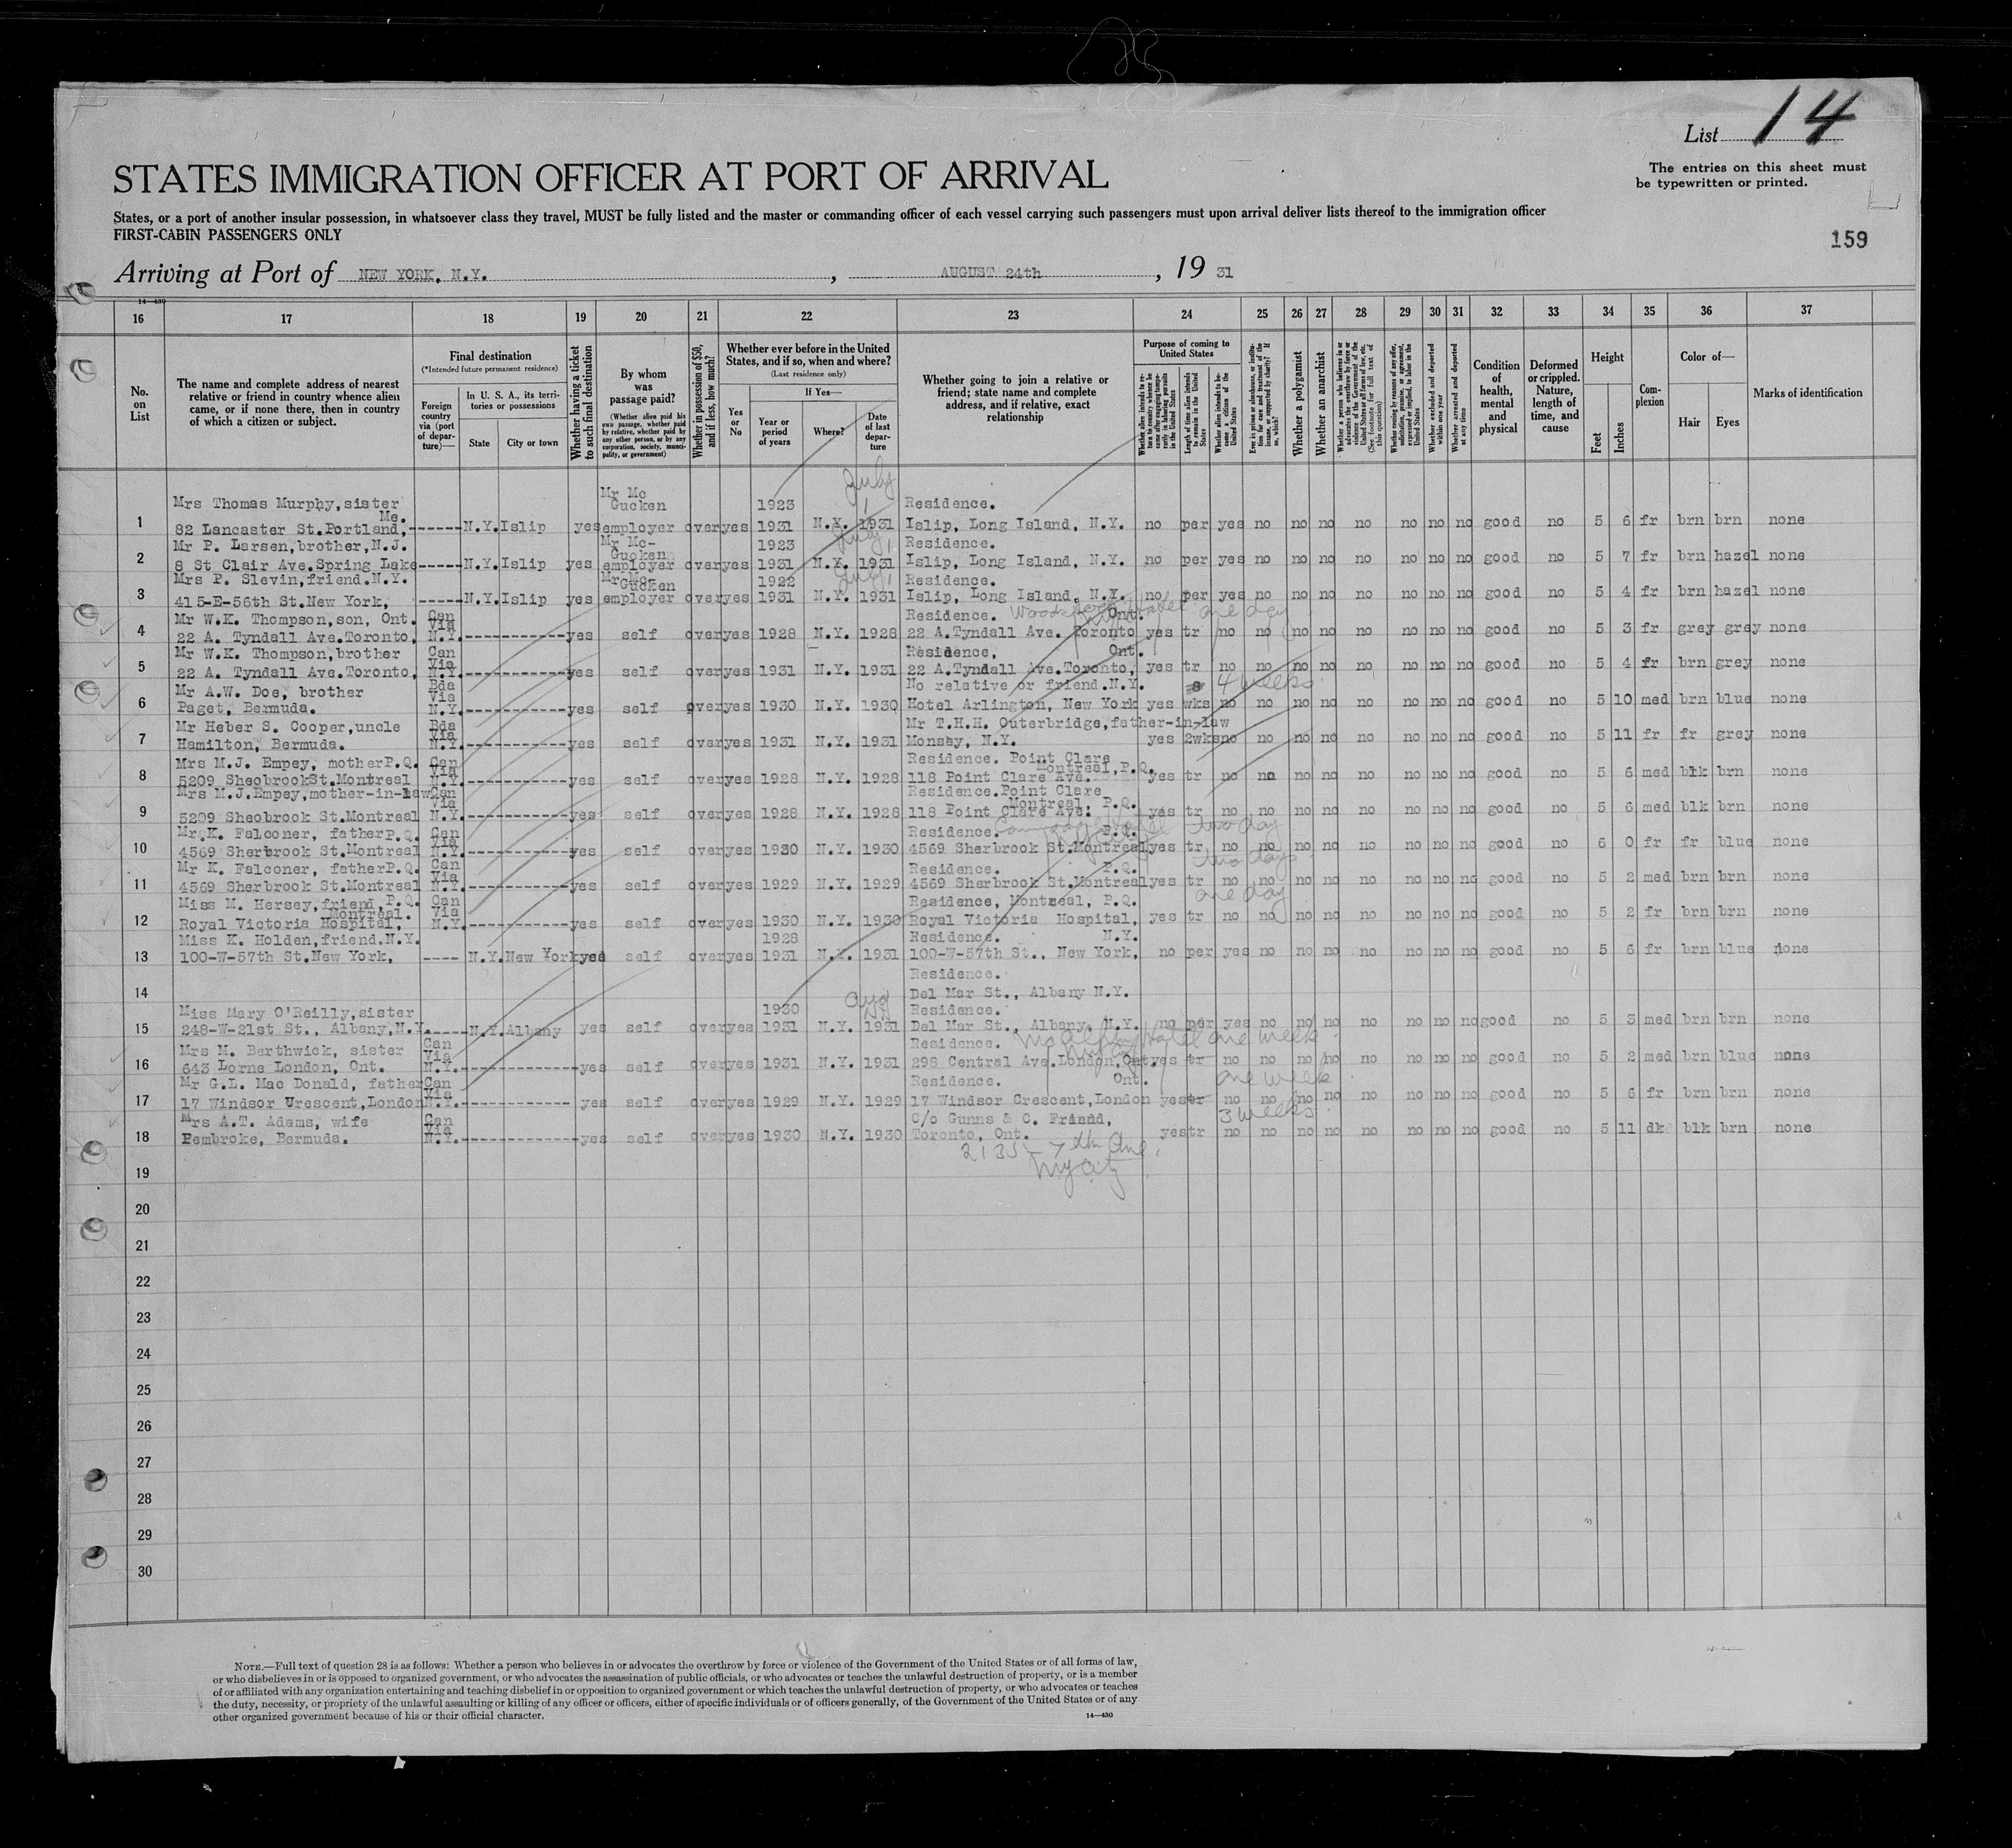 List 14
The entries on this sheet must
be typewritten or printed.
STATES IMMIGRATION OFFICER AT PORT OF ARRIVAL
States, or a port of another insular possession, in whatsoever class they travel, MUST be fully listed and the master or commanding officer of each vessel carrying such passengers must upon arrival deliver lists thereof to the immigration officer
FIRST-CABIN PASSENGERS ONLY
159
Arriving at Port of NEW YORK, N.Y. , AUGUST 24th , 19 31
14—430
16 17 18 19 20 21 22 23 24 25 26 27 28 29 30 31 32 33 34 35 36 37
No. on List
The name and complete address of nearest relative or friend in country whence alien came, or if none there, then in country of which a citizen or subject.
Final destination
(*Intended future permanent residence)
Foreign country via (port of departure)—
In U. S. A., its territories or possessions
State City or town
Whether having a ticket to such final destination
By whom was passage paid?
(Whether alien paid his own passage, whether paid by relative, whether paid by any other person, or by any corporation, society, municipality, or government)
Whether in possession of $50, and if less, how much?
Whether ever before in the United States, and if so, when and where?
(Last residence only)
Yes or No
If Yes—
Year or period of years Where? Date of last departure
Whether going to join a relative or friend; state name and complete address, and if relative, exact relationship
Purpose of coming to United States
Whether alien intends to return to country whence he came after engaging temporarily in laboring pursuits in the United States
Length of time alien intends to remain in the United States
Whether alien intends to become a citizen of the United States
Ever in prison or almshouse, or institution for care and treatment of the insane, or supported by charity? If so, which?
Whether a polygamist
Whether an anarchist
Whether a person who believes in or advocates the overthrow by force or violence of the Government of the United States or all forms of law, etc. (See footnote for full text of this question)
Whether coming by reason of any offer, solicitation, promise, or agreement, expressed or implied, to labor in the United States
Whether excluded and deported within one year
Whether arrested and deported at any time
Condition of health, mental and physical
Deformed or crippled. Nature, length of time, and cause
Height
Feet Inches
Complexion
Color of—
Hair Eyes
Marks of identification
Mrs Thomas Murphy,sister Mr Mc Gucken 1923 July 1 Residence.
1 82 Lancaster St.Portland, Me. ------ N.Y. Islip yes employer over yes 1931 N.Y. 1931 Islip, Long Island, N.Y. no per yes no no no no no no no good no 5 6 fr brn brn none
Mr P. Larsen,brother,N.J. Mr Mc- Gucken 1923 July 1, Residence.
2 8 St Clair Ave.Spring Lake ----- N.Y. Islip yes employer over yes 1931 N.Y. 1931 Islip, Long Island, N.Y. no per yes no no no no no no no good no 5 7 fr brn hazel none
Mrs P. Slevin,friend.N.Y. Mr Mc- Gucken 1922 July 1 Residence.
3 415-E-56th St.New York, ----- N.Y. Islip yes employer over yes 1931 N.Y. 1931 Islip, Long Island, N.Y. no per yes no no no no no no no good no 5 4 fr brn hazel none
Mr W.K. Thompson,son, Ont. Can Via Residence. Ont. Hotel one day
4 22 A. Tyndall Ave.Toronto, N.Y. ------------ yes self over yes 1928 N.Y. 1928 22 A.Tyndall Ave. Toronto yes tr no no no no no no no no good no 5 3 fr grey grey none
Mr W.K. Thompson,brother Can Via Residence, Ont.
5 22 A. Tyndall Ave.Toronto, N.Y. ------------ yes self over yes 1931 N.Y. 1931 22 A.Tyndall Ave.Toronto, yes tr no no no no no no no no good no 5 4 fr brn grey none
Mr A.W. Doe, brother Bda Via No relative or friend.N.Y. 4 weeks
6 Paget, Bermuda. N.Y. ------------ yes self over yes 1930 N.Y. 1930 Hotel Arlington, New York yes wks no no no no no no no no good no 5 10 med brn blue none
Mr Heber S. Cooper,uncle Bda Via Mr T.H.H. Outerbridge,father-in-law
7 Hamilton, Bermuda. N.Y. ------------ yes self over yes 1931 N.Y. 1931 Monsey, N.Y. yes 2wks no no no no no no no no good no 5 11 fr fr grey none
Mrs M.J. Empey, mother P.Q. Can Via Residence. Point Clare Montreal,P.Q.
8 5209 Sheobrook St.Montreal N.Y. ------------ yes self over yes 1928 N.Y. 1928 118 Point Clare Ave. yes tr no no no no no no no no good no 5 6 med blk brn none
Mrs M.J.Empey,mother-in-law Can Via Residence.Point Clare Montreal, P.Q.
9 5209 Sheobrook St.Montreal N.Y. ------------ yes self over yes 1928 N.Y. 1928 118 Point Clare Ave. yes tr no no no no no no no no good no 5 6 med blk brn none
Mr.K. Falconer, father P.Q. Can Via Residence. P.Q. two day
10 4569 Sherbrook St.Montreal N.Y. ------------ yes self over yes 1930 N.Y. 1930 4569 Sherbrook St.Montreal yes tr no no no no no no no no good no 6 0 fr fr blue none
Mr K. Falconer, father P.Q. Can Via Residence. P.Q. two days
11 4569 Sherbrook St.Montreal N.Y. ------------ yes self over yes 1929 N.Y. 1929 4569 Sherbrook St.Montreal yes tr no no no no no no no no good no 5 2 med brn brn none
Miss M. Hersey,friend,P.Q. Montreal. Can Via Residence, Montreal, P.Q. one day
12 Royal Victoria Hospital, N.Y. ------------ yes self over yes 1930 N.Y. 1930 Royal Victoria Hospital, yes tr no no no no no no no no good no 5 2 fr brn brn none
Miss K. Holden,friend.N.Y. 1928 Residence. N.Y.
13 100-W-57th St.New York, ---- N.Y. New York yes self over yes 1931 N.Y. 1931 100-W-57th St., New York, no per yes no no no no no no no good no 5 6 fr brn blue none
Residence.
14 Del Mar St., Albany N.Y.
Miss Mary O'Reilly,sister 1930 Aug Residence.
15 248-W-21st St., Albany,N.Y. ----- N.Y. Albany yes self over yes 1931 N.Y. 1931 Del Mar St., Albany, N.Y. no per yes no no no no no no no good no 5 3 med brn brn none
Mrs M. Berthwick, sister Can Via Residence. McAlpin Hotel one week
16 643 Lorne London, Ont. N.Y. ------------ yes self over yes 1931 N.Y. 1931 298 Central Ave.London,Ont yes tr no no no no no no no no good no 5 2 med brn blue none
Mr G.L. Mac Donald, father Can Via Residence. Ont. one week
17 17 Windsor Crescent,London N.Y. ------------ yes self over yes 1929 N.Y. 1929 17 Windsor Crescent,London yes tr no no no no no no no no good no 5 6 fr brn brn none
Mrs A.T. Adams, wife Can Via C/o Gunns & C. Friend, 3 weeks
18 Pembroke, Bermuda. N.Y. ------------ yes self over yes 1930 N.Y. 1930 Toronto, Ont. yes tr no no no no no no no no good no 5 11 dk blk brn none
2135 - 7th Ave.
19 NY City
20
21
22
23
24
25
26
27
28
29
30
NOTE.—Full text of question 28 is as follows: Whether a person who believes in or advocates the overthrow by force or violence of the Government of the United States or of all forms of law,
or who disbelieves in or is opposed to organized government, or who advocates the assassination of public officials, or who advocates or teaches the unlawful destruction of property, or is a member
of or affiliated with any organization entertaining and teaching disbelief in or opposition to organized government or which teaches the unlawful destruction of property, or who advocates or teaches
the duty, necessity, or propriety of the unlawful assaulting or killing of any officer or officers, either of specific individuals or of officers generally, of the Government of the United States or of any
other organized government because of his or their official character.
14—430